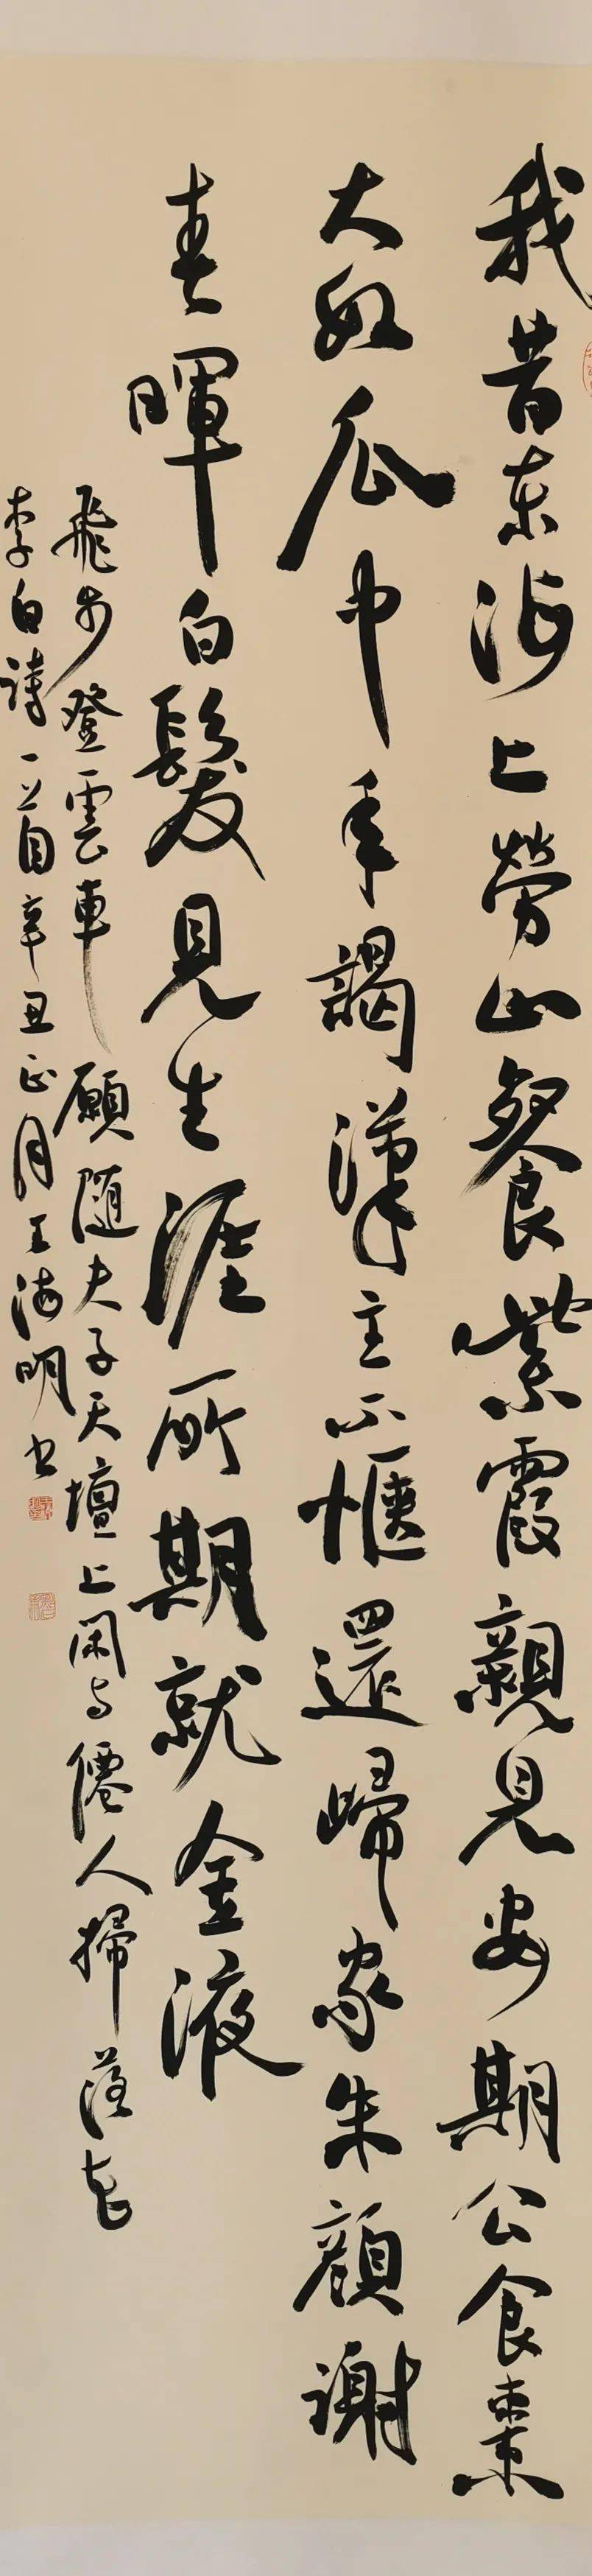 我昔東海上勞山餐紫霞親見安期公食棗
大如瓜中年謁漢主不愜還歸家朱顏謝
春暉白髮見生涯所期就金液
飛步登雲車願隨夫子天壇上閑與僊人掃落花
李白詩一首辛丑正月王海明书